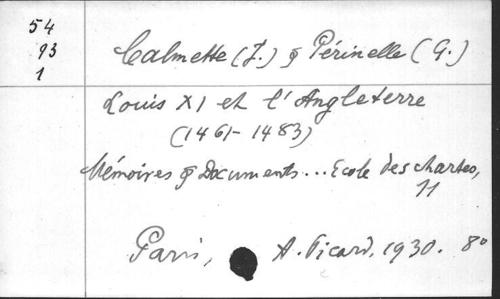 54
93
1
Calmette (J.) & Périnelle (G.)
Louis XI et l'Angleterre
(1461-1483)
Mémoires & Documents... Ecole des chartes,
11
Paris, A. Picard, 1930. 8º